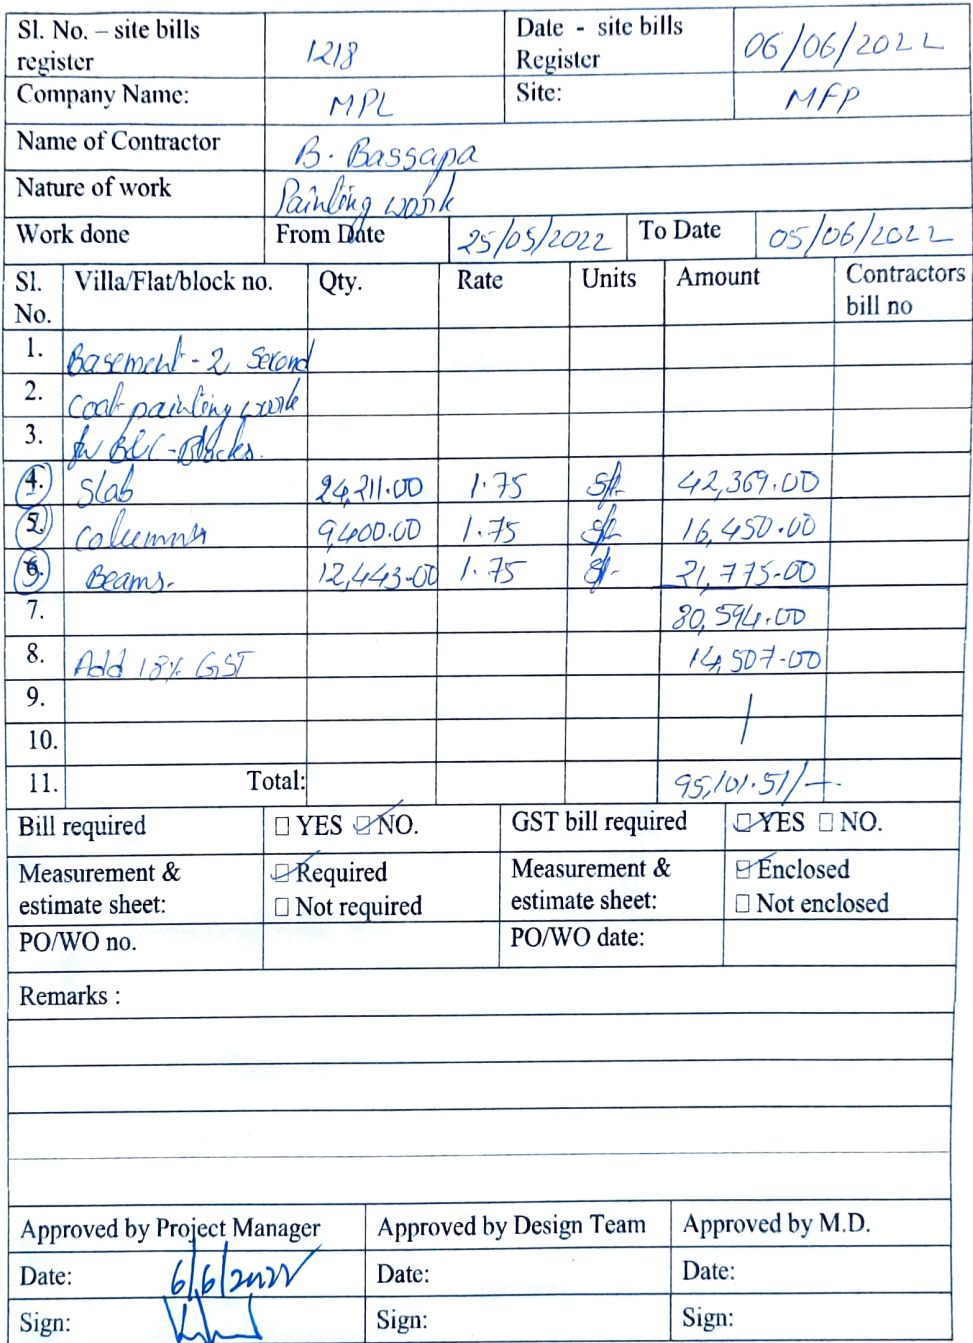 Sl. No. – site bills register 1218 Date - site bills Register 06/06/2022
Company Name: MPL Site: MFP
Name of Contractor B. Bassapa
Nature of work Painting work
Work done From Date 25/05/2022 To Date 05/06/2022
Sl. No. Villa/Flat/block no. Qty. Rate Units Amount Contractors bill no
1. Basement - 2, Second
2. Coat painting work
3. for B&C - Blocks.
4. Slab 24,211.00 1.75 sft 42,369.00
5. Columns 9,400.00 1.75 sft 16,450.00
6. Beams. 12,443.00 1.75 sft 21,775.00
7. 80,594.00
8. Add 18% GST 14,507.00
9.
10.
11. Total: 95,101.51/-
Bill required ☐ YES ☑ NO. GST bill required ☑ YES ☐ NO.
Measurement & estimate sheet: ☑ Required ☐ Not required Measurement & estimate sheet: ☑ Enclosed ☐ Not enclosed
PO/WO no. PO/WO date:
Remarks :
Approved by Project Manager Approved by Design Team Approved by M.D.
Date: 6/6/2022 Date: Date:
Sign: Sign: Sign: